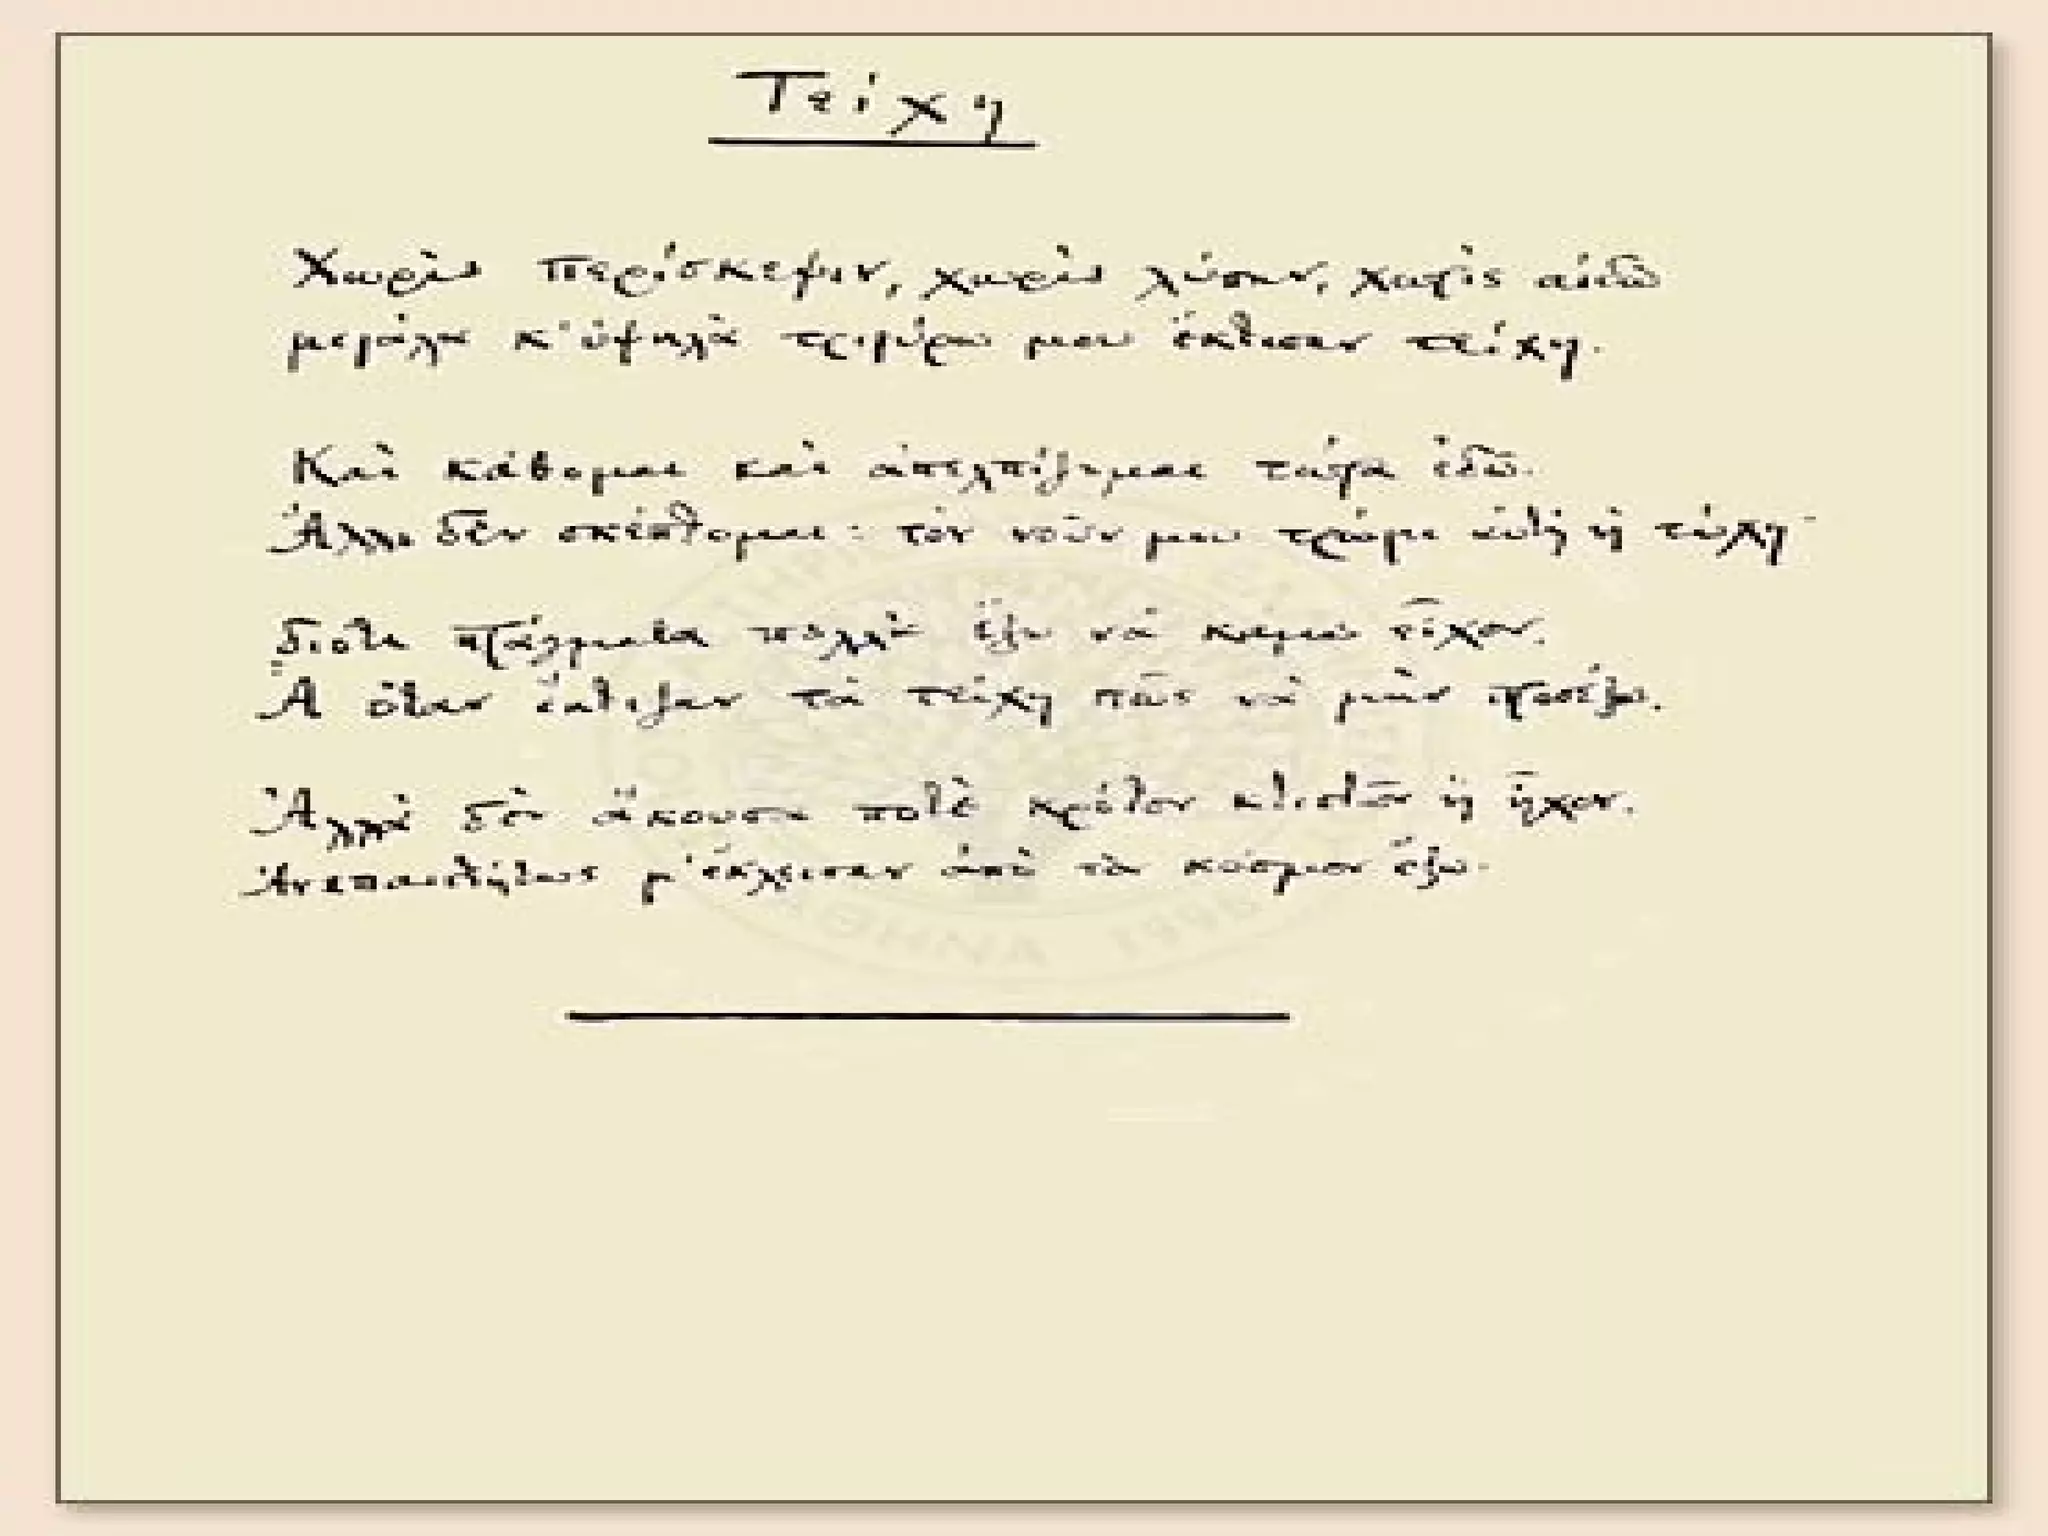 Τείχη
Χωρὶς περίσκεψιν, χωρὶς λύπην, χωρὶς αἰδὼ
μεγάλα κ' ὑψηλὰ τριγύρω μου ἔκτισαν τείχη.
Καὶ κάθομαι καὶ ἀπελπίζομαι τώρα ἐδῶ.
Ἄλλο δὲν σκέπτομαι: τὸν νοῦν μου τρώγει αὐτὴ ἡ τύχη·
διότι πράγματα πολλὰ ἔξω νὰ κάμω εἶχον.
Ἆ ὅταν ἔκτιζαν τὰ τείχη πῶς νὰ μὴν προσέξω.
Ἀλλὰ δὲν ἄκουσα ποτὲ κρότον κτιστῶν ἢ ἦχον.
Ἀνεπαισθήτως μ' ἔκλεισαν ἀπὸ τὸν κόσμον ἔξω.
ΑΘΗΝΑ